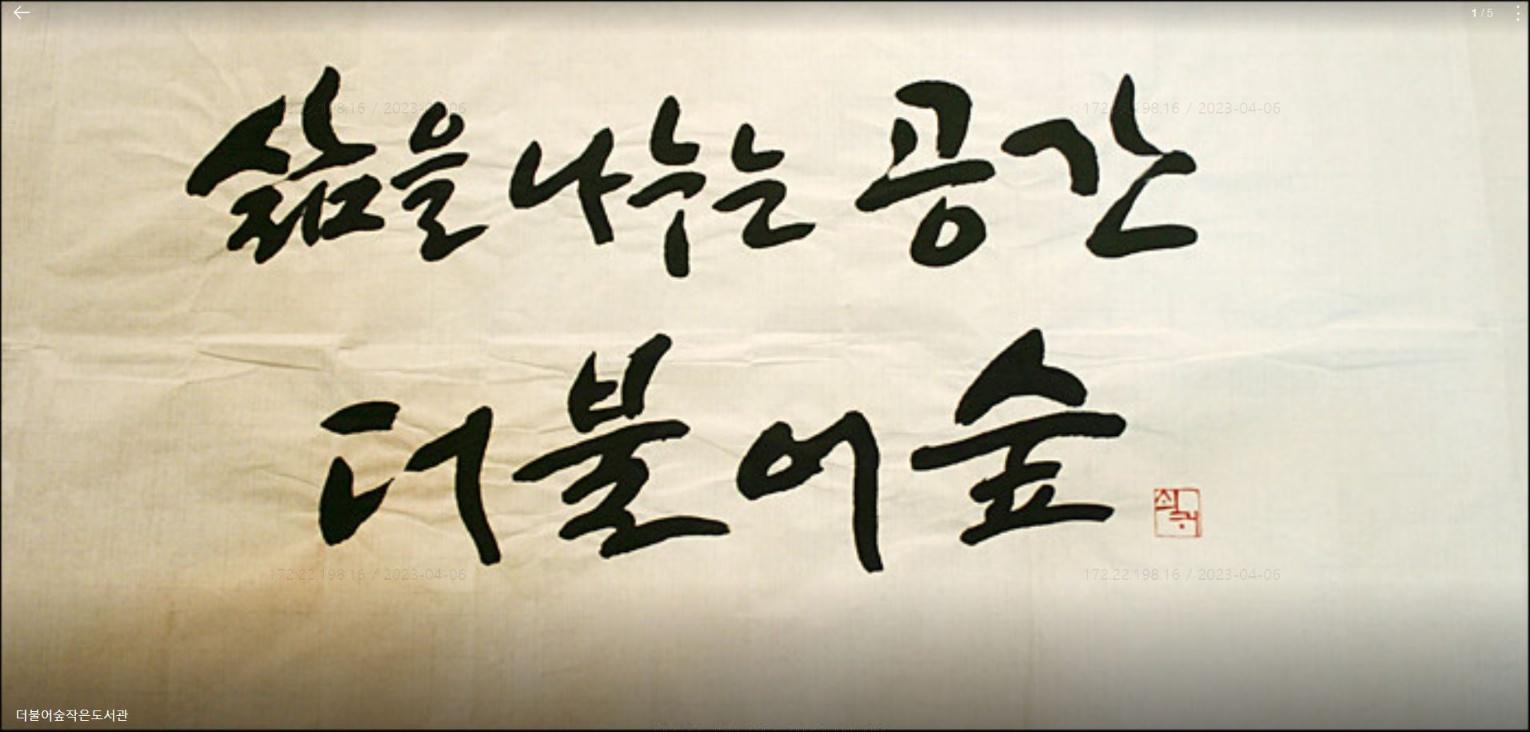 1 / 5
172.22.198.16 / 2023-04-06
삶을 나누는 공간
더불어숲
172.22.198.16 / 2023-04-06 172.22.198.16 / 2023-04-06
더불어숲작은도서관